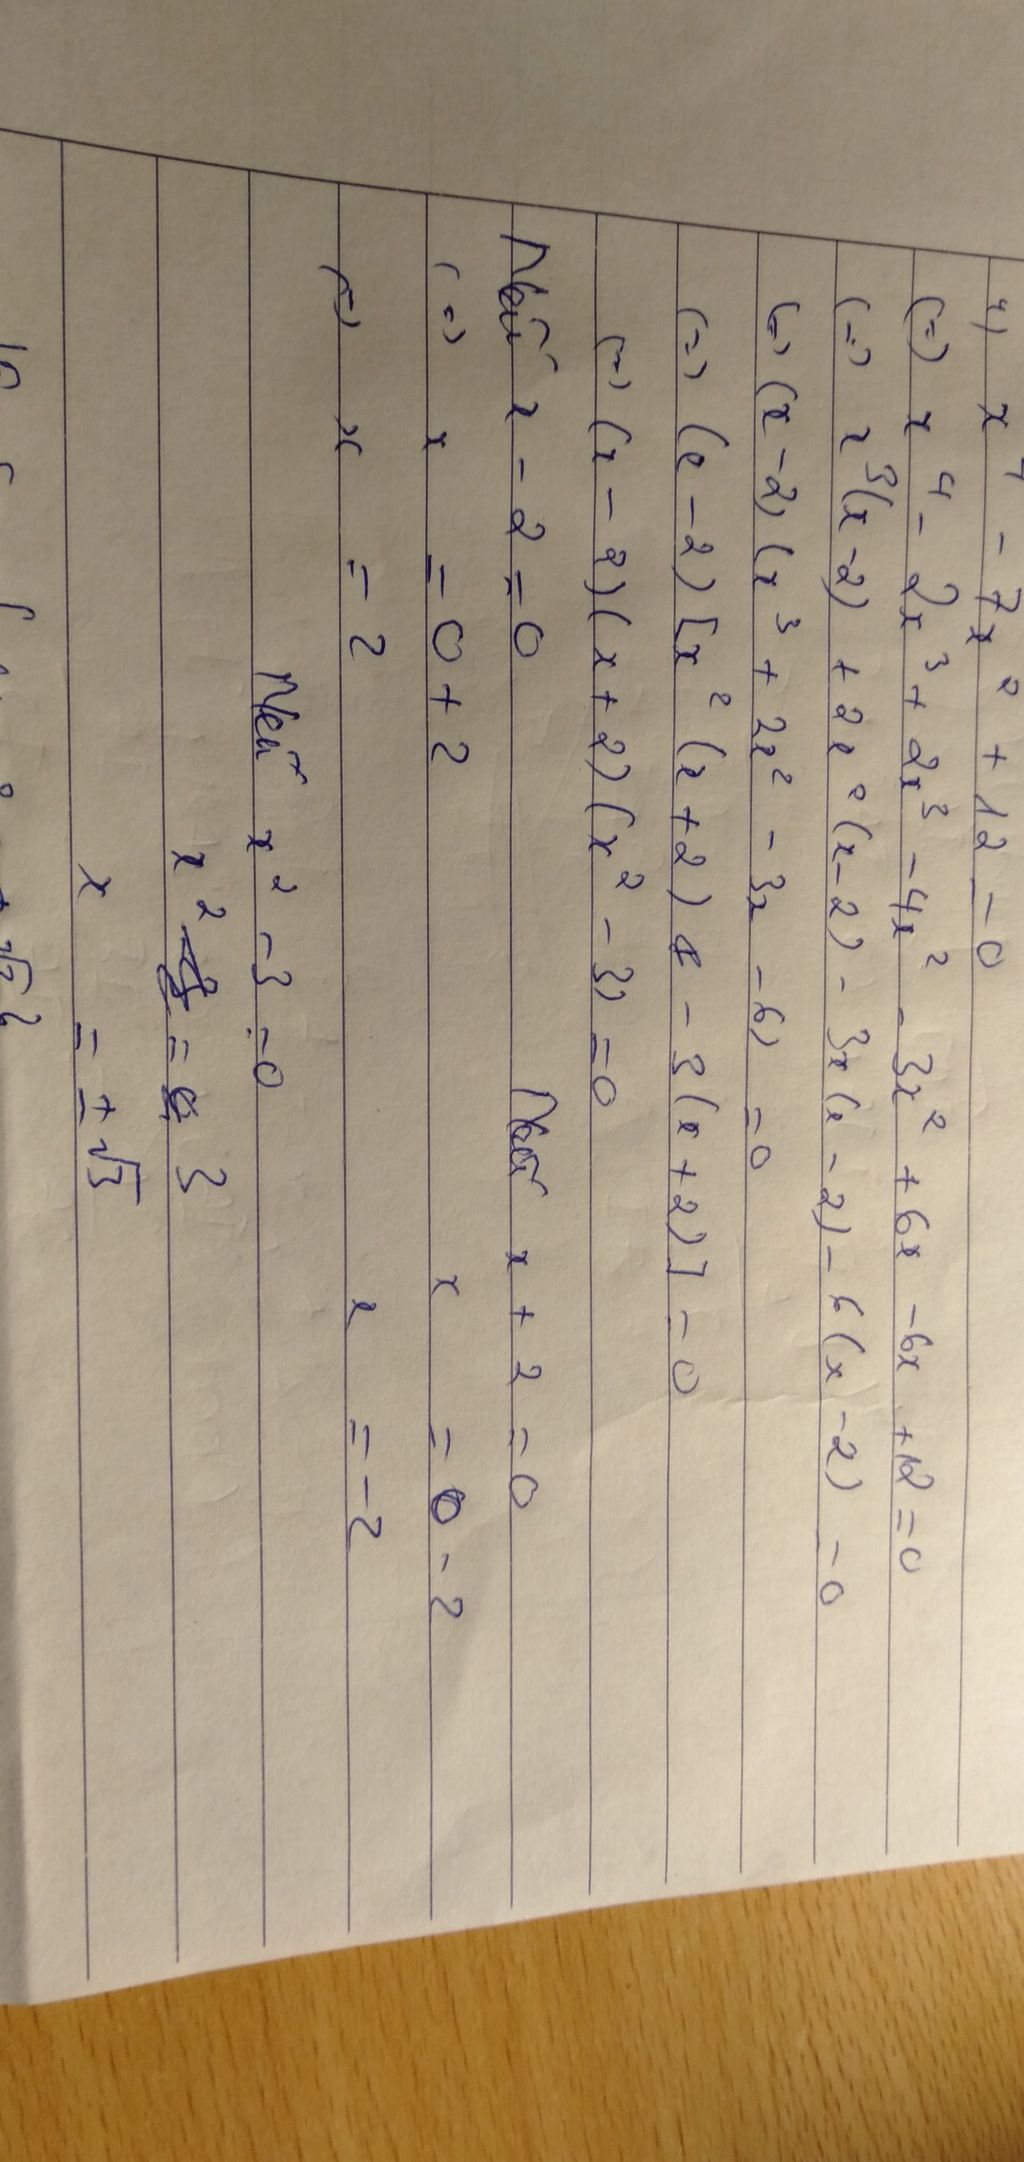 4) x⁴ - 7x² + 12 = 0
(=) x⁴ - 2x³ + 2x³ - 4x² - 3x² + 6x - 6x + 12 = 0
(=) x³(x-2) + 2x²(x-2) - 3x(x-2) - 6(x-2) = 0
(=) (x-2)(x³ + 2x² - 3x - 6) = 0
(=) (x-2)[x²(x+2) - 3(x+2)] = 0
(=) (x-2)(x+2)(x²-3) = 0
Nếu x - 2 = 0 Nếu x + 2 = 0
(=) x = 0 + 2 x = 0 - 2
(=) x = 2 x = -2
Nếu x² - 3 = 0
x² = 3
x = ±√3